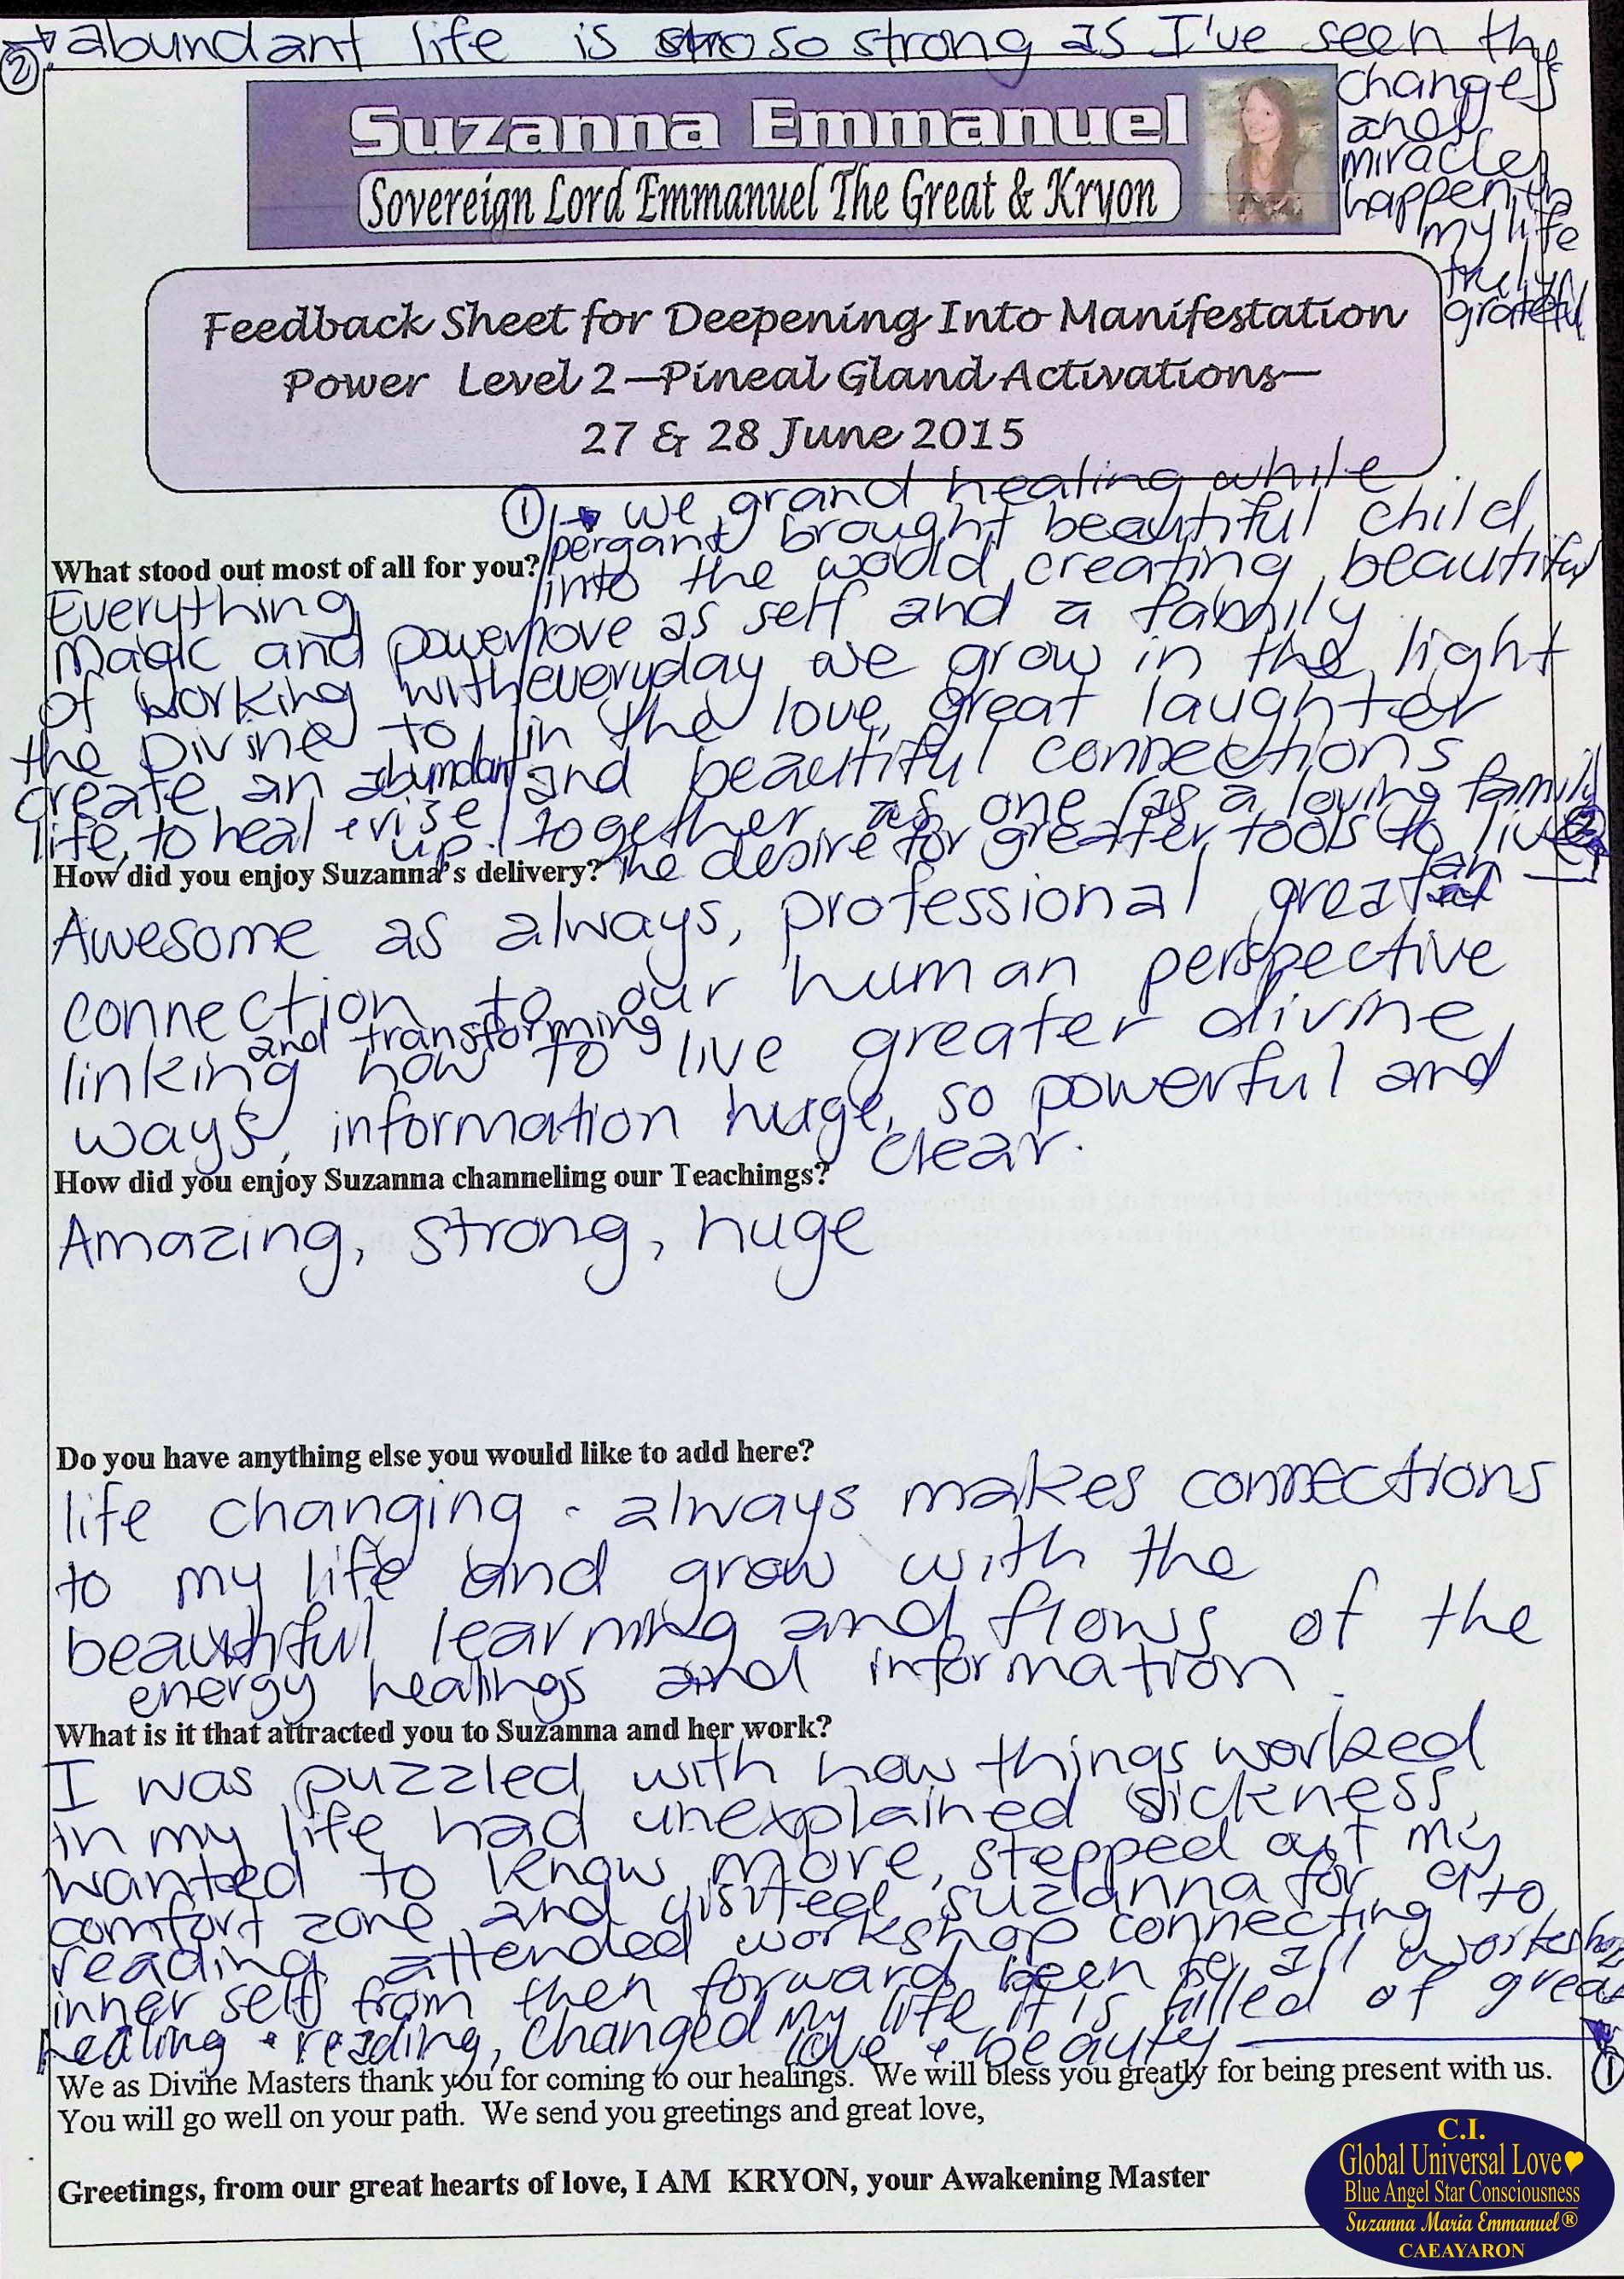 ② → abundant life is so so strong as I've seen the
changes
and
miracles
happen in
my life
truly
grateful
Suzanna Emmanuel
Sovereign Lord Emmanuel The Great & Kryon
Feedback Sheet for Deepening Into Manifestation
Power Level 2 —Pineal Gland Activations—
27 & 28 June 2015
① → we grand healing while
pergant brought beautiful child
into the world, creating beautiful
love as self and a family
everyday we grow in the light
in the love, great laughter
and beautiful connections
together as one (as a loving family
the desire for greater tools to live ②
an →
What stood out most of all for you?
Everything
Magic and power
of working with
the Divine to
create an abundant
life, to heal + rise
up.
How did you enjoy Suzanna's delivery?
Awesome as always, professional great
connection to our human perspective
linking and transforming how to live greater divine
ways, information huge, so powerful and
clear.
How did you enjoy Suzanna channeling our Teachings?
Amazing, strong, huge
Do you have anything else you would like to add here?
life changing - always makes connections
to my life and grow with the
beautiful learning and flows of the
energy healings and information.
What is it that attracted you to Suzanna and her work?
I was puzzled with how things worked
in my life had unexplained sickness,
wanted to know more, stepped out my
comfort zone and visited suzanna for a
reading attended workshop connecting to
inner self from then forward been to all workshop
healing + reading, changed my life it is filled of great
love + beauty → ①
We as Divine Masters thank you for coming to our healings. We will bless you greatly for being present with us.
You will go well on your path. We send you greetings and great love,
Greetings, from our great hearts of love, I AM KRYON, your Awakening Master
C.I.
Global Universal Love♥
Blue Angel Star Consciousness
Suzanna Maria Emmanuel®
CAEAYARON